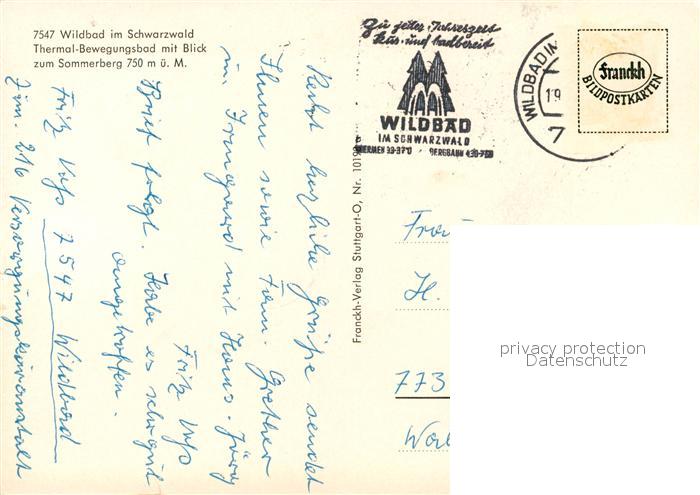 7547 Wildbad im Schwarzwald
Thermal-Bewegungsbad mit Blick
zum Sommerberg 750 m ü. M.
Zu jeder Jahreszeit
kur- und badbereit
WILDBAD
IM SCHWARZWALD
THERMEN 33-37°C BERGBAHN 430-750
WILDBAD IM
19
7
Franckh
BILDPOSTKARTEN
Franckh-Verlag Stuttgart-O, Nr. 101
Recht herzliche Grüße sendet
Ihnen sowie Fam. Grether
u. Irmgard mit Hans-Jörg
Fritz
Brief folgt. Habe es sehr gut
angetroffen.
Fritz
7547 Wildbad
Zim. 216 Versorgungskuranstalt
Frau
H.
773
privacy protection
Datenschutz